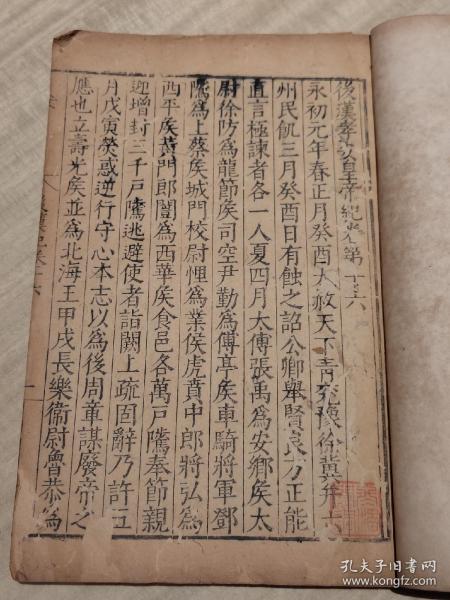 後漢孝安皇帝紀卷第十六
永初元年春正月癸酉大赦天下青兗豫徐冀并六
州民飢三月癸酉日有蝕之詔公卿舉賢良方正能
直言極諫者各一人夏四月太傅張禹為安鄉侯太
尉徐防為龍節侯司空尹勤為傅亭侯車騎將軍鄧
隲為上蔡侯城門校尉悝為業侯虎賁中郎將弘為
西平侯黃門郎閶為西華侯食邑各萬戶隲奉節親
迎增封三千戶隲逃避使者詣闕上疏固辭乃許五
月戊寅熒惑逆行守心本志以為後周章謀廢帝之
應也立壽光侯並為北海王甲戌長樂衛尉魯恭為
孔夫子旧书网
www.kongfz.com